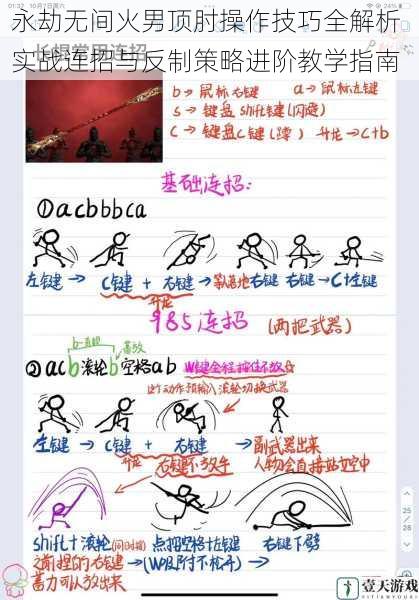 01:32 10月7日周六
24%
永劫无间火男顶肘操作技巧全解析
实战连招与反制策略进阶教学指南
长棍常用连招
b→鼠标右键 a→鼠标左键
s→键盘shift键(闪避)
c→键盘c键(蹲) 升龙→c+b
基础连招:
①acbbbca
左键→c键+右键→等落地右键 右键→c+左键
升龙
985连招 (两把武器)
b-直按 蓄放
②acb滚轮b空格ab W键全程按住不放
这个动作预输入滚轮切换武器
左键→c键+右键→副武器出来
升龙 右键不放手 人物会直接站立空中
shift+滚轮(同时按) 点按空格+左键 右键下劈
之前捏的右键→(W及时不松开)→
蓄力可以放出来
25
/
28
壹天游戏
YITIANYOUXI